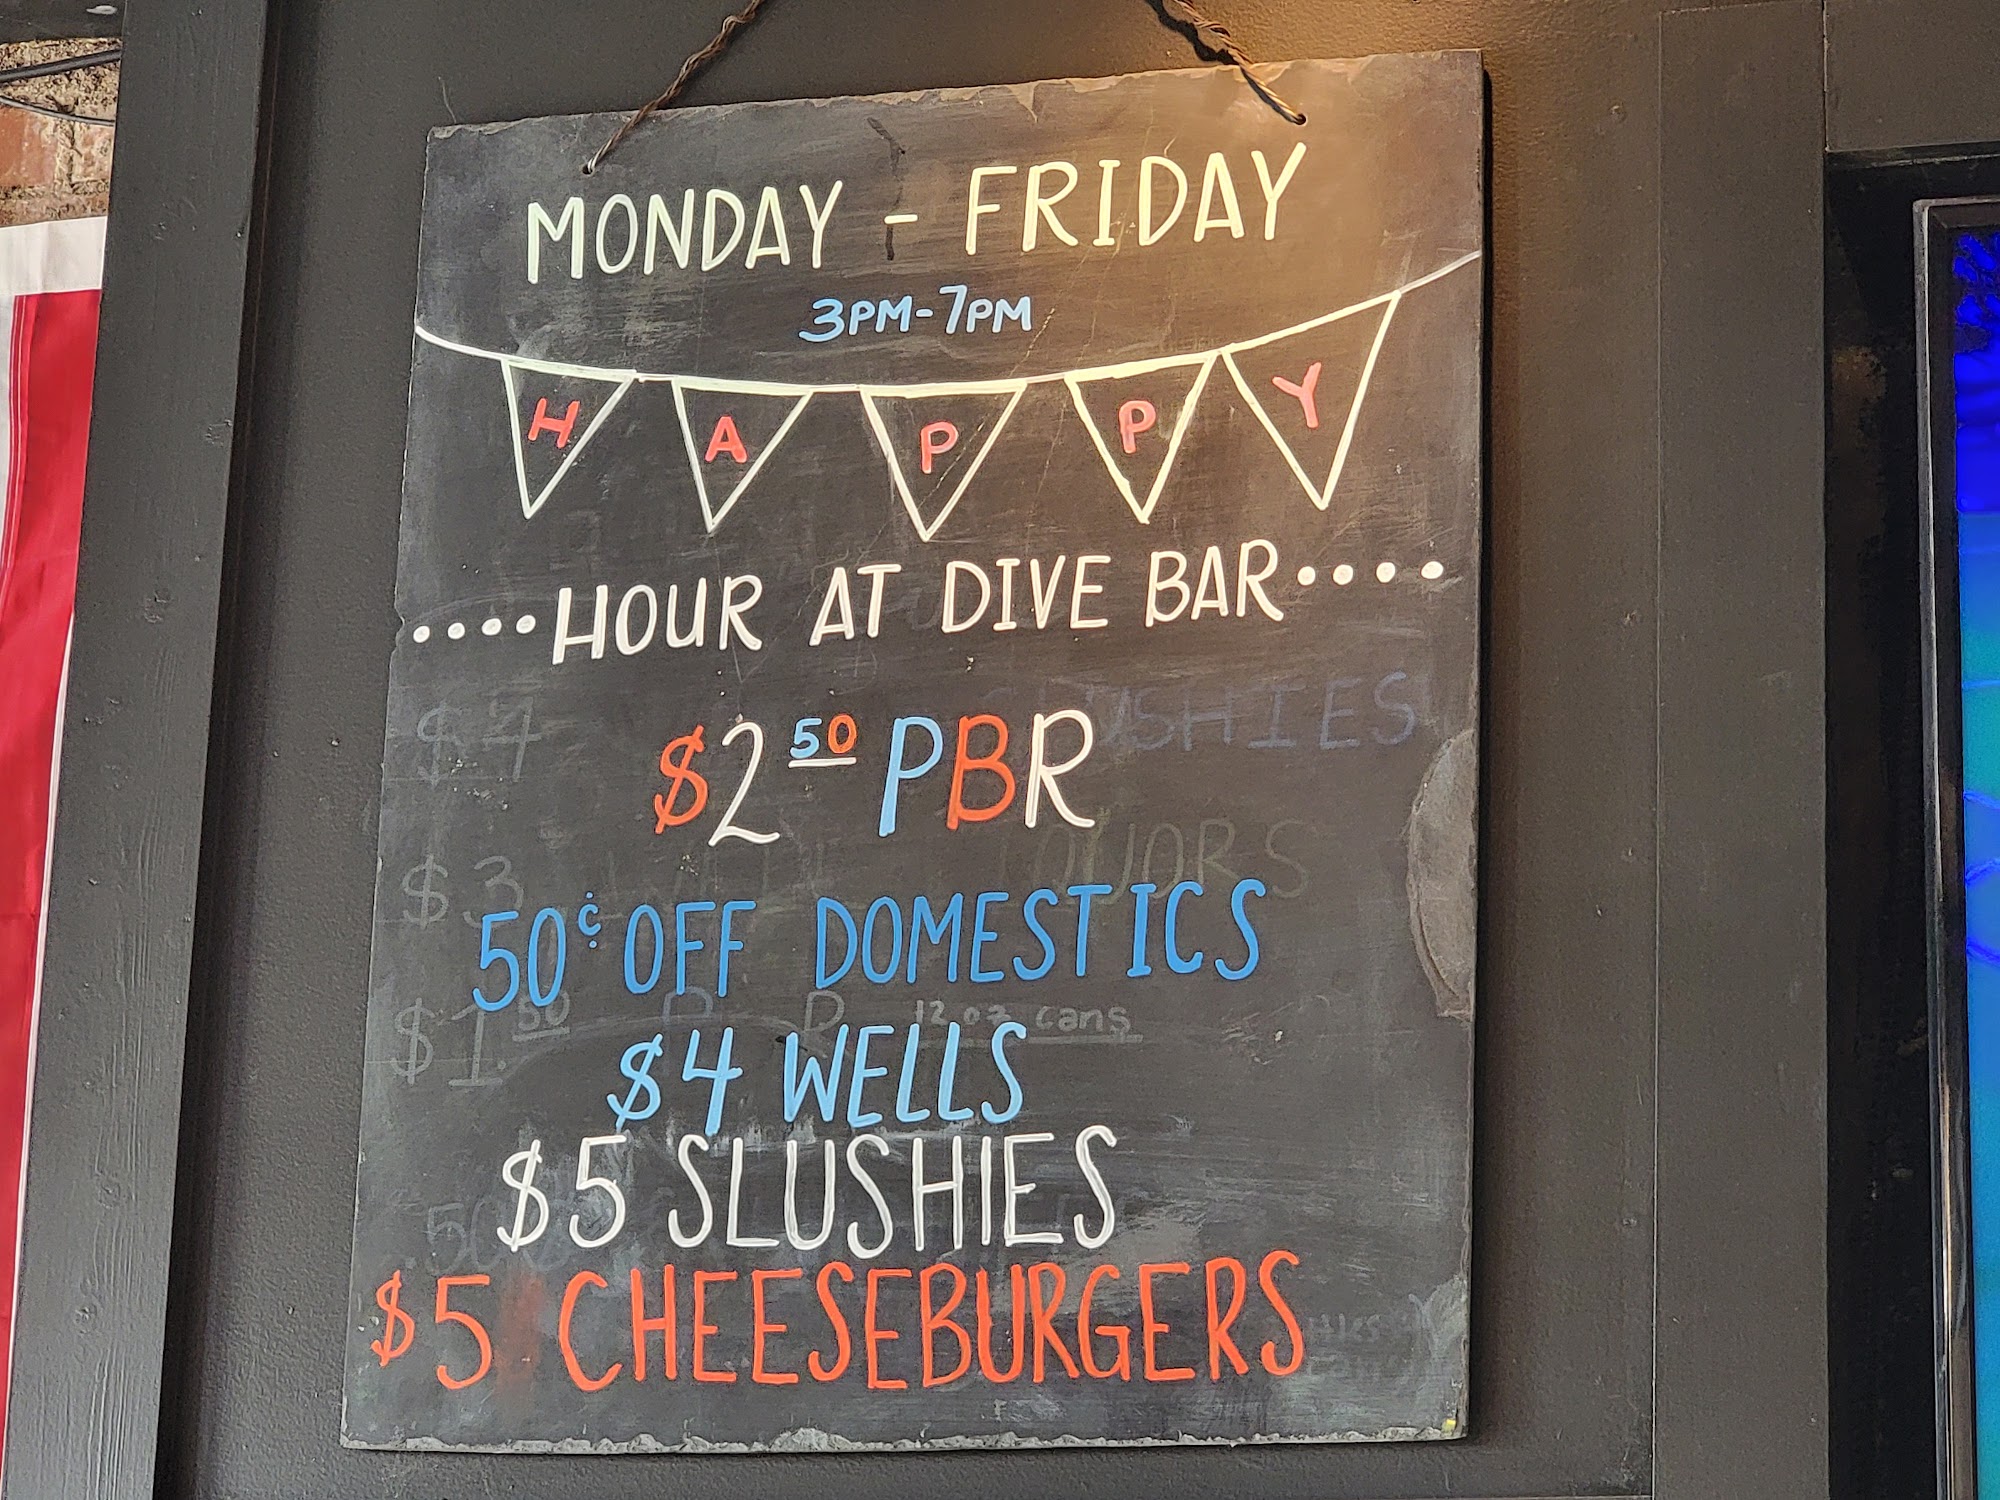 MONDAY - FRIDAY
3PM-7PM
HAPPY
····HOUR AT DIVE BAR····
$2 50 PBR
50¢ OFF DOMESTICS
$4 WELLS
$5 SLUSHIES
$5 CHEESEBURGERS
$4 SLUSHIES
$3
$1.50 12 oz cans